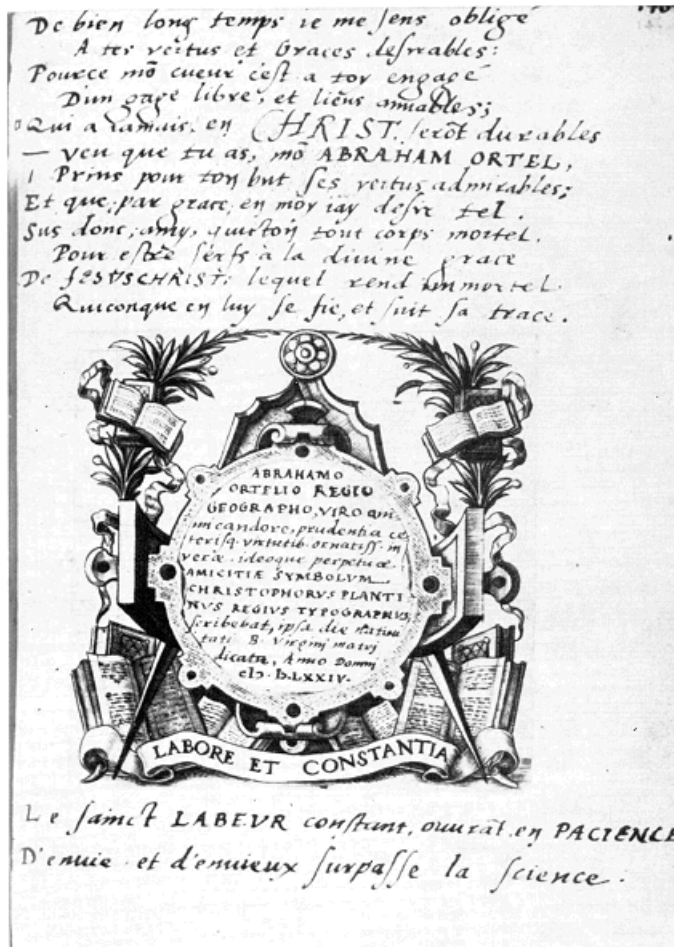 De bien long temps ie me sens obligé
A tes vertus et Graces desirables:
Pource mõ cueur c'est a toy engagé
D'un gage libre, et liens amiables;
Qui a iamais, en CHRIST. serõt durables
— veu que tu as, mõ ABRAHAM ORTEL,
Prins pour ton but ses vertus admirables;
Et que, par grace, en moy iay desir tel.
Sus donc, amy, quictoñ tout corps mortel.
Pour estre serfs à la divine grace
De JESUSCHRIST: lequel rend immortel
Quiconque en luy se fie, et suit sa trace.
ABRAHAMO
ORTELIO REGIO
GEOGRAPHO, VIRO ani
mi candore, prudentia ce
terisq. virtutib. ornatiss. in
veræ, ideoque perpetuæ
AMICITIÆ SYMBOLUM
CHRISTOPHORVS PLANTI
NVS REGIVS TYPOGRAPHVS
scribebat, ipsa die nativi
tati B. Virgini matri
dicata, Anno Domini
cIↃ.IↃ.LXXIV.
LABORE ET CONSTANTIA
Le sainct LABEVR constant, ouvrãt en PACIENCE
D'envie et d'envieux surpasse la science.